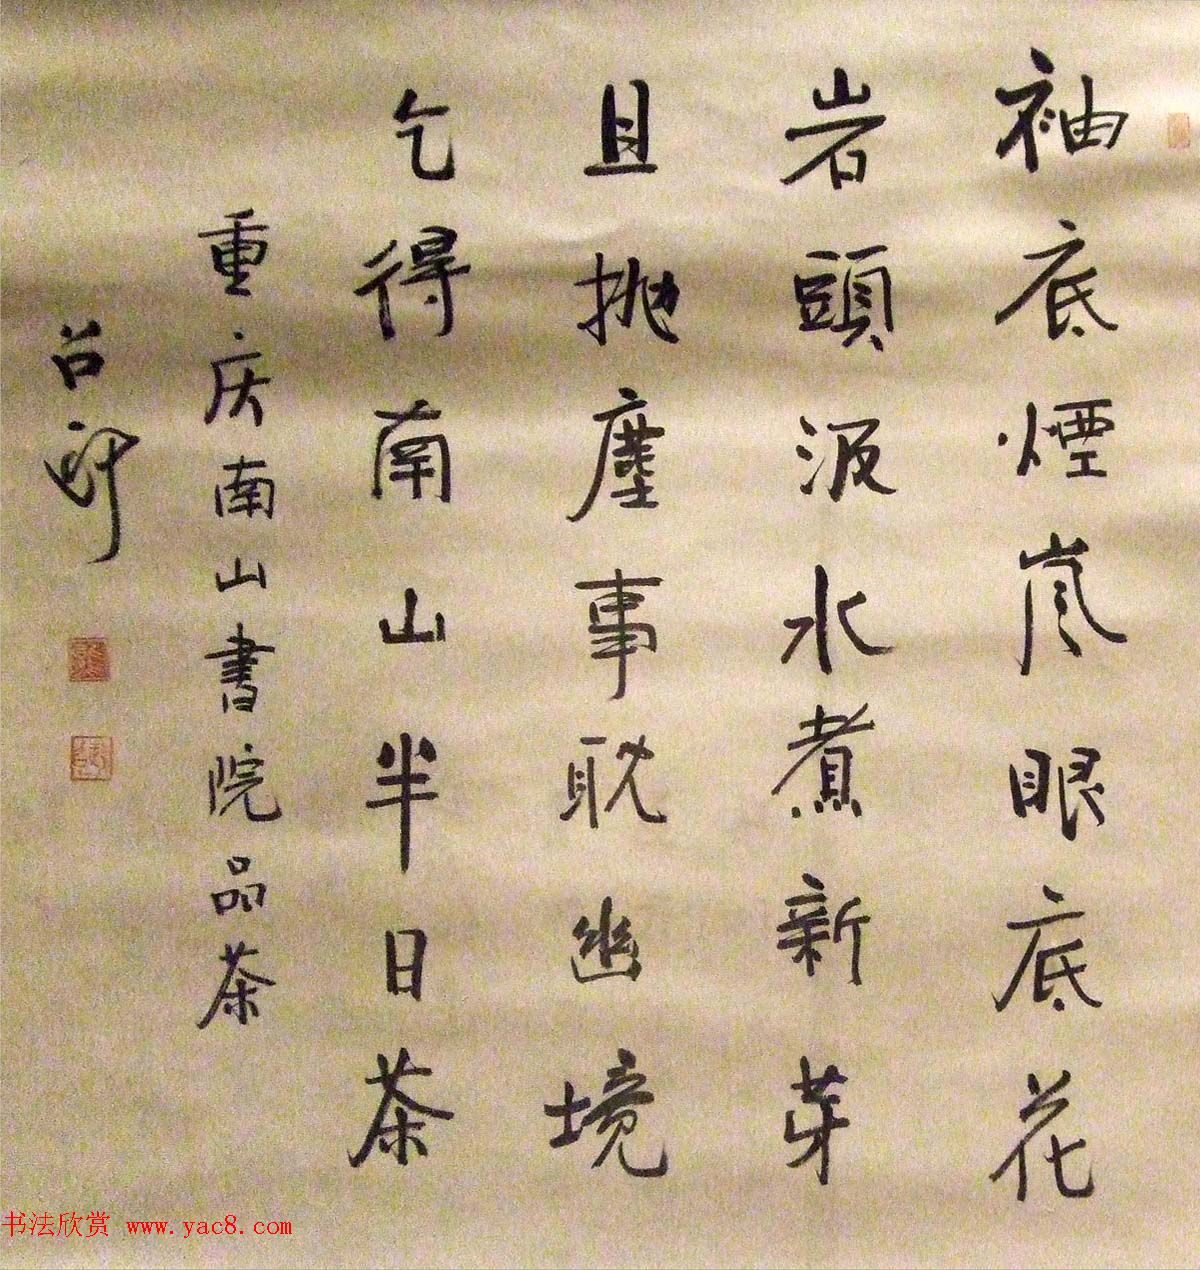 袖底煙嵐眼底花
岩頭汲水煮新芽
且拋塵事耽幽境
乞得南山半日茶
重庆南山書院品茶
书法欣赏 www.yac8.com